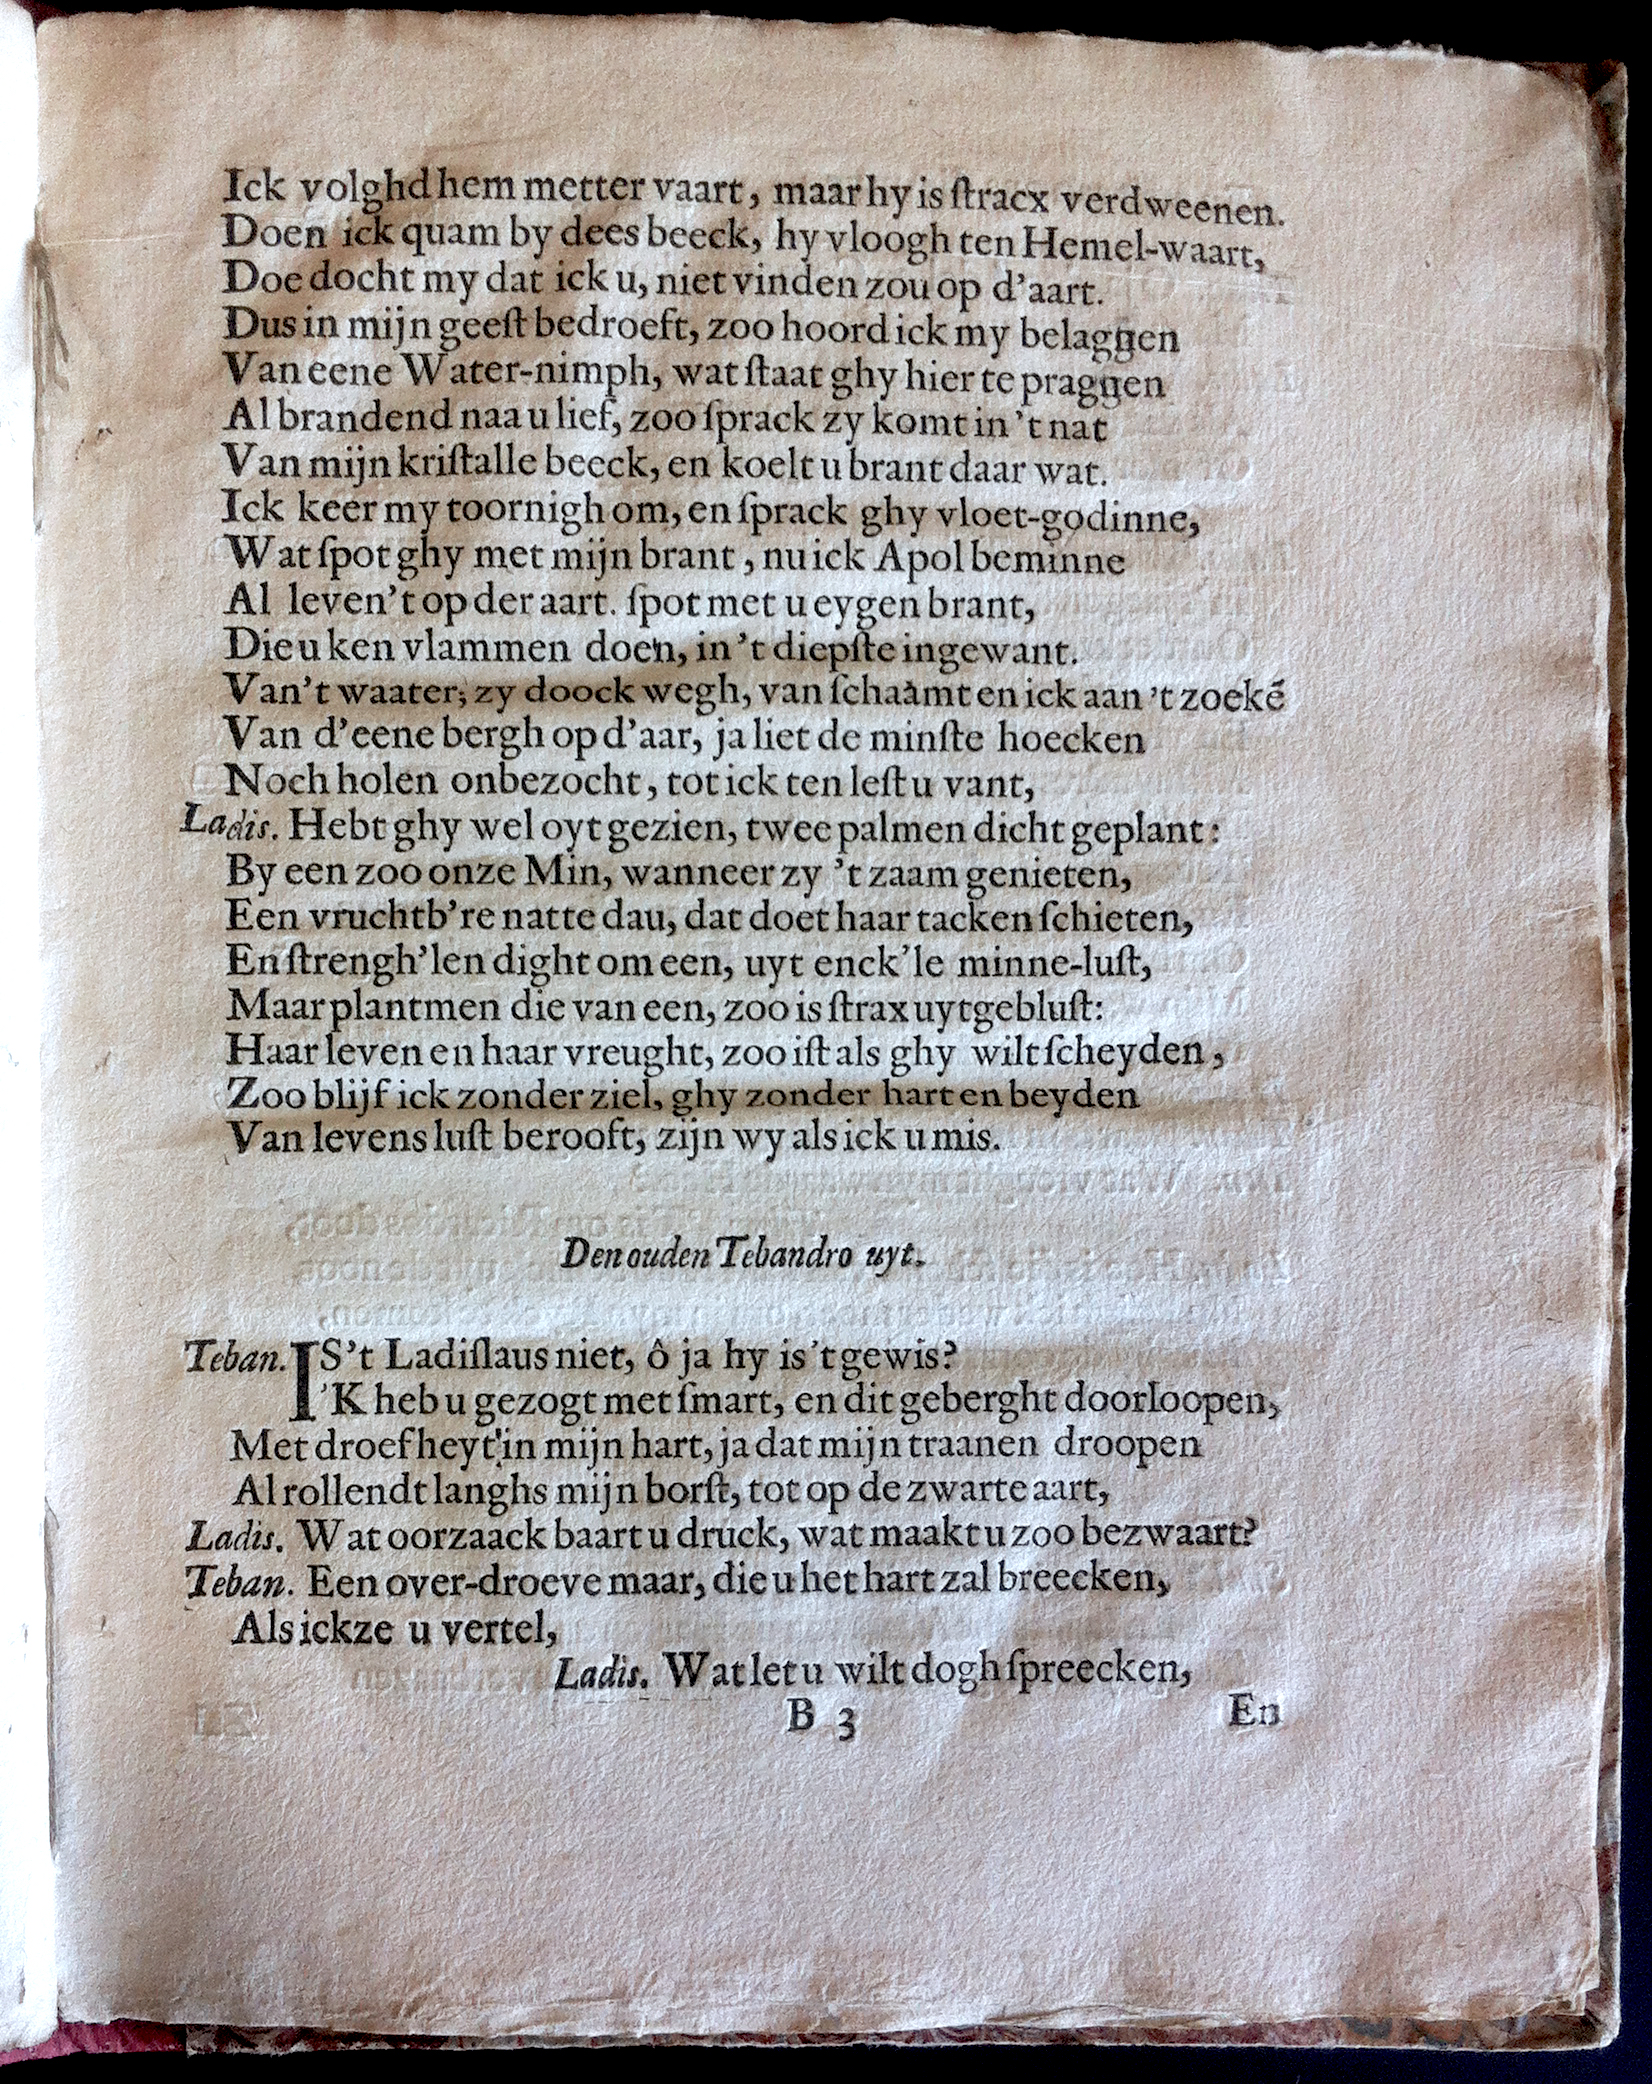 Ick volghd hem metter vaart, maar hy is ſtracx verdweenen.
Doen ick quam by dees beeck, hy vloogh ten Hemel-waart,
Doe docht my dat ick u, niet vinden zou op d'aart.
Dus in mijn geeſt bedroeft, zoo hoord ick my belaggen
Van eene Water-nimph, wat ſtaat ghy hier te praggen
Al brandend naa u lief, zoo ſprack zy komt in 't nat
Van mijn kriſtalle beeck, en koelt u brant daar wat.
Ick keer my toornigh om, en ſprack ghy vloet-godinne,
Wat ſpot ghy met mijn brant, nu ick Apol beminne
Al leven't op der aart. ſpot met u eygen brant,
Die u ken vlammen doen, in 't diepſte ingewant.
Van't waater; zy doock wegh, van ſchaamt en ick aan 't zoekē
Van d'eene bergh op d'aar, ja liet de minſte hoecken
Noch holen onbezocht, tot ick ten leſt u vant,
Ladis. Hebt ghy wel oyt gezien, twee palmen dicht geplant:
By een zoo onze Min, wanneer zy 't zaam genieten,
Een vruchtb're natte dau, dat doet haar tacken ſchieten,
En ſtrengh'len dight om een, uyt enck'le minne-luſt,
Maar plantmen die van een, zoo is ſtrax uytgebluſt:
Haar leven en haar vreught, zoo iſt als ghy wilt ſcheyden,
Zoo blijf ick zonder ziel, ghy zonder hart en beyden
Van levens luſt berooft, zijn wy als ick u mis.
Den ouden Tebandro uyt.
Teban. IS't Ladiſlaus niet, ô ja hy is 't gewis?
'K heb u gezogt met ſmart, en dit geberght doorloopen,
Met droefheyt in mijn hart, ja dat mijn traanen droopen
Al rollendt langhs mijn borſt, tot op de zwarte aart,
Ladis. Wat oorzaack baart u druck, wat maakt u zoo bezwaart?
Teban. Een over-droeve maar, die u het hart zal breecken,
Als ickze u vertel,
Ladis. Wat let u wilt dogh ſpreecken,
B 3 En